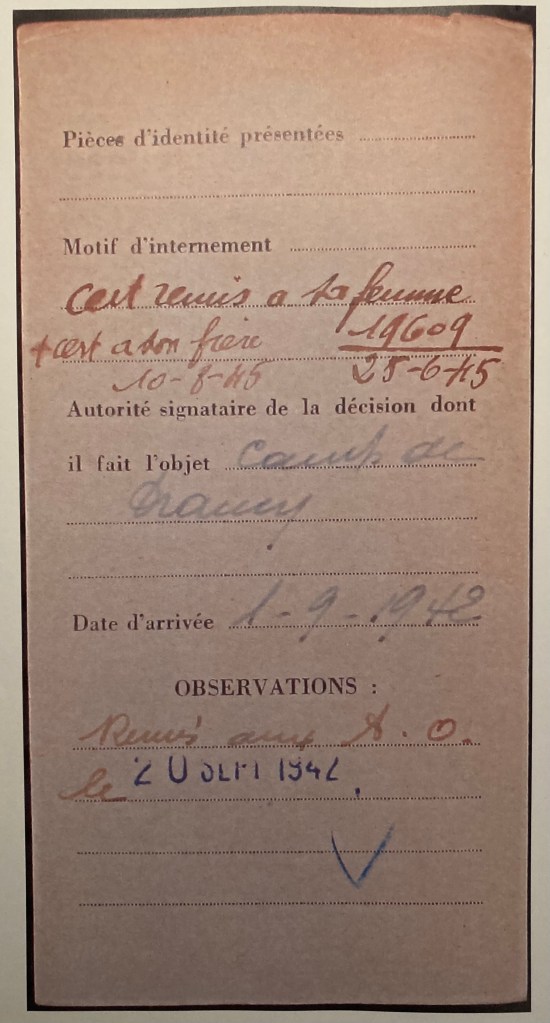 Pièces d'identité présentées
Motif d'internement
Cert remis a sa femme
19609
+ cert a son frère
10-8-45
25-6-45
Autorité signataire de la décision dont
il fait l'objet Camp de
Drancy
Date d'arrivée 1-9-1942
OBSERVATIONS :
Remis aux A. O.
le 20 SEPT 1942.